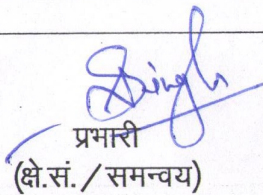 Singh
प्रभारी
(क्षे.सं. / समन्वय)